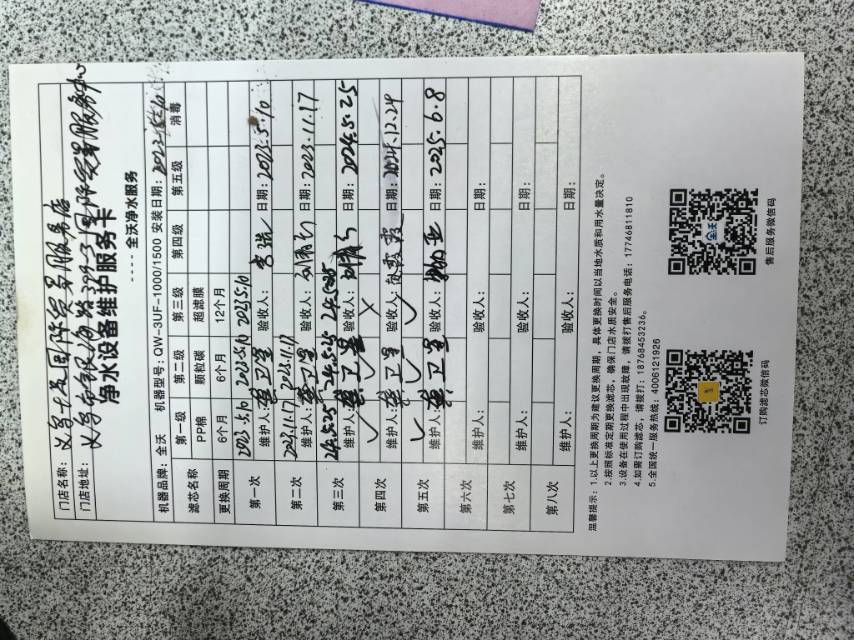 ---- 全沃净水服务
净水设备维护服务卡
门店名称：义乌
门店地址：义乌
机器品牌：全沃 机器型号：QW-3UF-1000/1500 安装日期：
滤芯名称 第一级 第二级 第三级 第四级 第五级 消毒
PP棉 颗粒碳 超滤膜
更换周期 6个月 6个月 12个月
第一次 2023.5.10 2023.5.10 2023.5.10
维护人： 验收人： 日期：2023.5.10
第二次 2023.11.17 2023.11.17
维护人： 验收人： 日期：2023.11.17
第三次 24.5.25 24.5.25 24.5.25
维护人： 验收人： 日期：2024.5.25
第四次 ✓ ✓ ×
维护人： 验收人： 日期：2024.12.24
第五次 ✓ ✓ ✓
维护人： 验收人： 日期：2025.6.8
第六次
维护人： 验收人： 日期：
第七次
维护人： 验收人： 日期：
第八次
维护人： 验收人： 日期：
温馨提示：1.以上更换周期为建议更换周期，具体更换时间以当地水质和用水量决定。
2.按照标准定期更换滤芯，确保门店水质安全。
3.设备在使用过程中出现故障，请拨打售后服务电话：17746811810
4.如需订购滤芯，请拨打：18768453236。
5.全国统一服务热线：4006121926
订购滤芯微信码
全沃
售后服务微信码